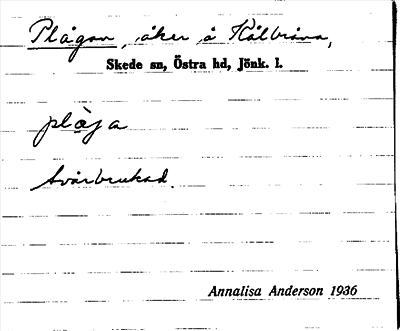 Plågan, åker å Kålbränna,
Skede sn, Östra hd, Jönk. l.
plåga
Svårbrukad.
Annalisa Anderson 1936